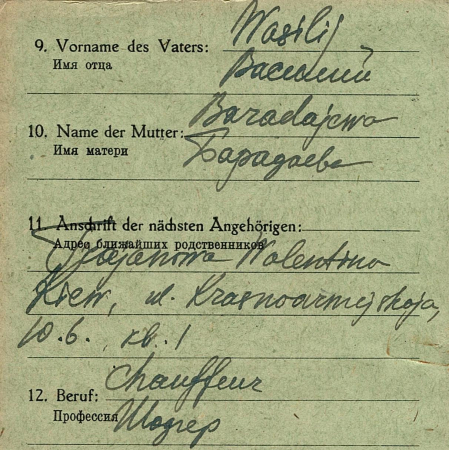 Wasilij
9. Vorname des Vaters:
Имя отца
Василий
Baradajewa
10. Name der Mutter:
Имя матери
Барадаева
11. Anschrift der nächsten Angehörigen:
Адрес ближайших родственников
Walentina
Kiew, ul. Krasnoarmejskaja,
10.6. кв. 1
Chauffeur
12. Beruf:
Профессия
Шофер